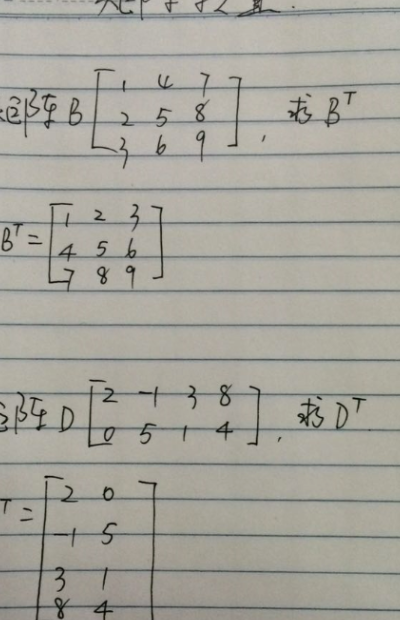 矩阵B [1 4 7
2 5 8
3 6 9], 求B^T
B^T = [1 2 3
4 5 6
7 8 9]
矩阵D [2 -1 3 8
0 5 1 4], 求D^T
T = [2 0
-1 5
3 1
8 4